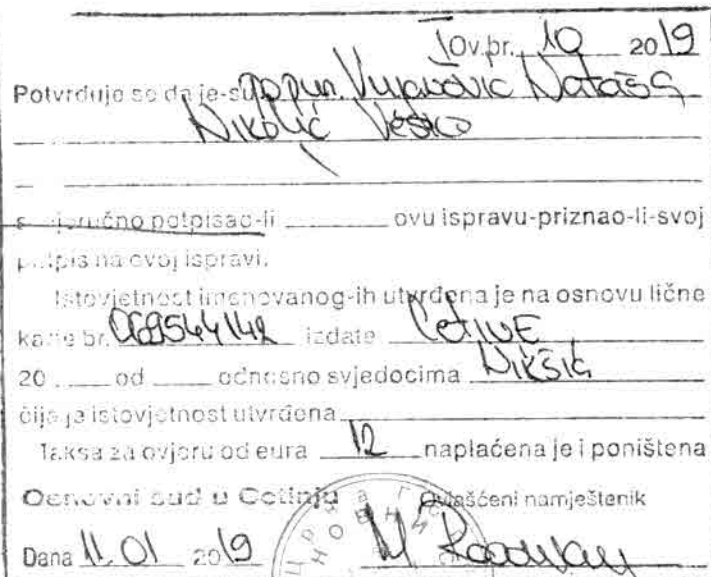 I Ov. br. 10 2019
Potvrđuje se da je-su popun. Vujanović Nataša
Nikolić Veško
svojeručno potpisao-li ovu ispravu-priznao-li-svoj
potpis na ovoj ispravi.
Istovjetnost imenovanog-ih utvrđena je na osnovu lične
karte br. izdate Cetinje
20 od odnosno svjedocima Nikšić
čija je istovjetnost utvrđena
Taksa za ovjeru od eura 12 naplaćena je i poništena
Osnovni sud u Cetinju Ovlašćeni namještenik
Dana 11.01 2019